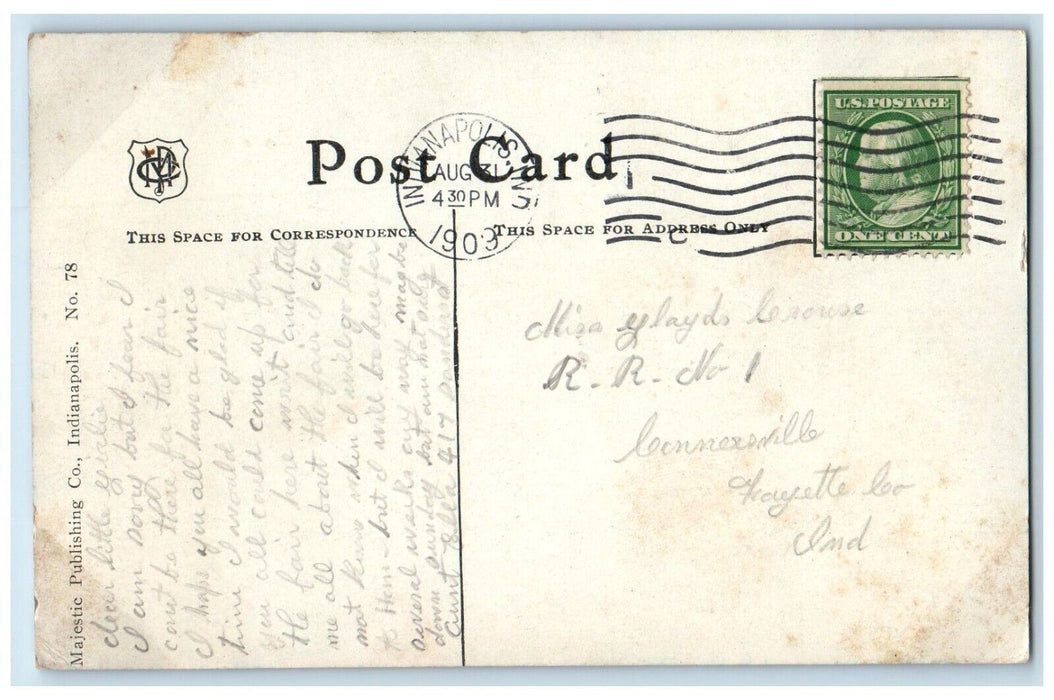 Post Card
THIS SPACE FOR CORRESPONDENCE
THIS SPACE FOR ADDRESS ONLY
INDIANAPOLIS, IND.
AUG 31
4 30 PM
1909
U.S. POSTAGE
ONE CENT
Majestic Publishing Co., Indianapolis. No. 78
dear little girlie
I am sory but I fear I
cant be there for the fair
I hope you all have a nice
time I would be glad if
you all could come up for
the fair here write and tell
me all about the fair I do
not know when I will go back
to Ham - but I will be here for
several weaks any way may be
down sunday but am not only
aunt 417
Miss Glayds Crouse
R. R. No 1
Connersville
Fayette Co
Ind